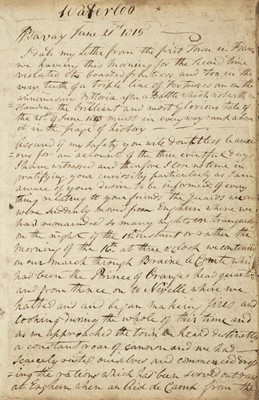 Waterloo
Bavay June 21st 1815
I date my Letter from the first Town in France
we having this morning for the first time
violated the boasted frontiers and torn in the
very teeth of a triple line of Fortresses on the
anniversary of Vittoria after a Battle which
the brilliant and most glorious title of
the 21st of June 1813 must in every way rank above
it in the page of history —
Assured of my safety you will doubtless be anxi
ous for an account of the three eventful days
I have witnessed and therefore I lose no time in
gratifying your curiosity particularly as I am
aware of your desire to be informed of every
thing relating to your friends the Guards
We were suddenly moved from Enghien where we
had remained so many nights in tranquility
on the night of the 15th instant or rather the
morning of the 16th at three o'clock we continued
on our march through Braine le Comte which
had been the Prince of Oranges head quarters
and from thence on to Nivelle where we
halted and began making fires and
cooking during the whole of this time and
as we approached the town we heard distinctly
a constant roar of cannon and we had
scarcely rested ourselves and commenced dress
=ing the rations which had been served out
at Enghien when an Aide de Camp from the